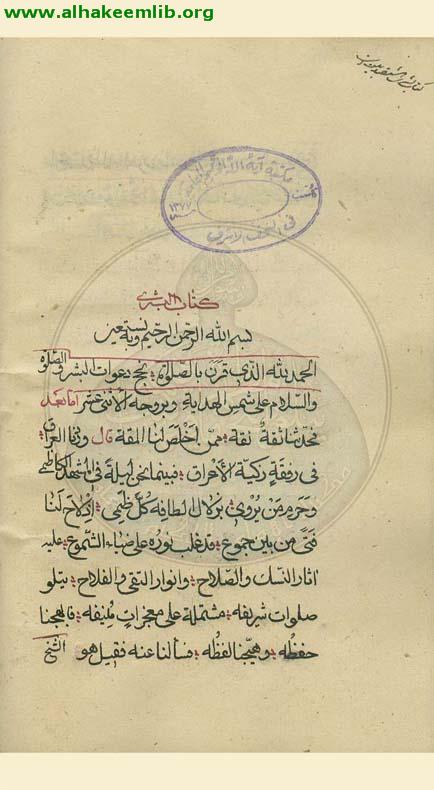 www.alhakeemlib.org
مكتبة آية الله
في النجف الاشرف
كتاب البشرى
بسم الله الرحمن الرحيم وبه نستعين
الحمد لله الذي قرن بالصلوة نجح دعوات البشر والصلوة
والسلام على شمس الهداية وبروجه الاثنى عشر اما بعد
فحدثنا ثقة ثقة ممن اخلص لنا المقة قال وردنا العراق
في رفقة زكية الأعراق فبينما نحن ليلة في المشهد الكاظمي
وحرم من يروي بزلال الطافه كل ظمي اذ لاح لنا
فتى من بين جموع قد غلب نوره على ضياء الشموع عليه
اثار النسك والصلاح وانوار التقى والفلاح يتلو
صلوات شريفه مشتملة على معجزات منيفه فابهجنا
حفظه وهيجنا لفظه فسألنا عنه فقيل هو الشيخ